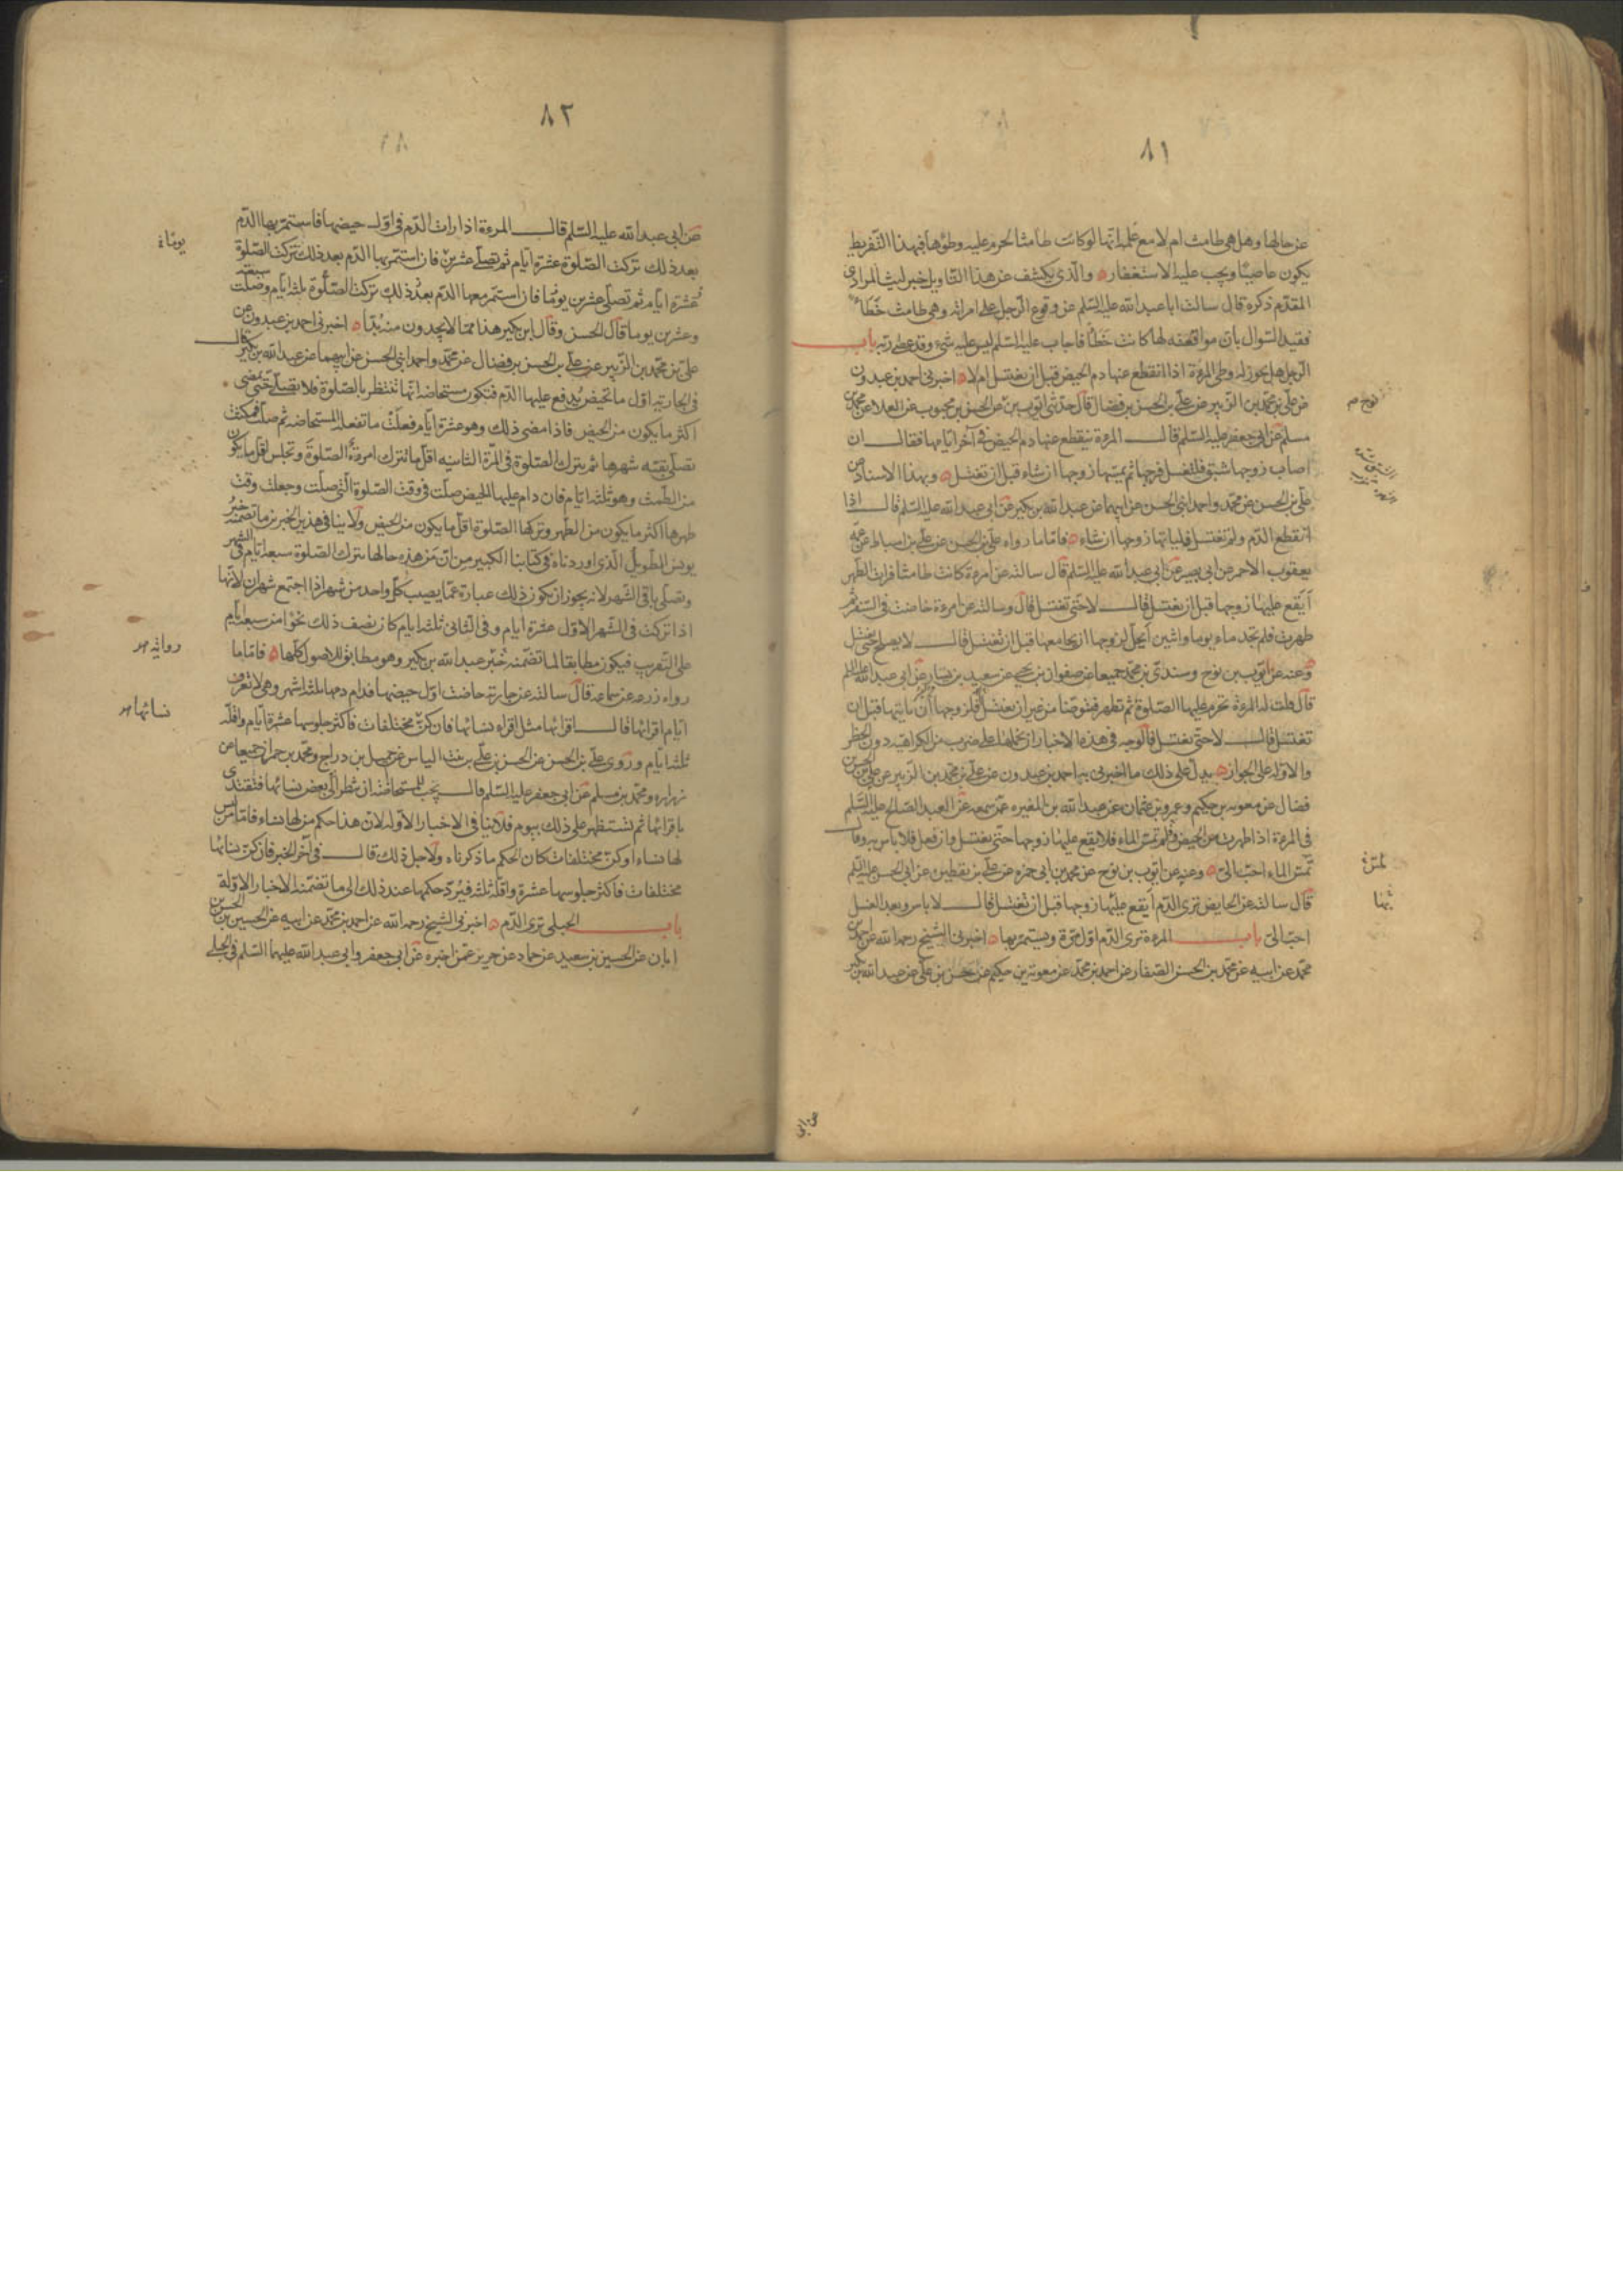 ٨١
عن حالها وهل هي طامث ام لا مع علمه انها لو كانت طامثا لحرم عليه وطؤها فبهذا التفريط
يكون عاصيا ويجب عليه الاستغفار والذي يكشف عن هذا التاويل خبر ليث المرادي
المقدم ذكره قال سالت ابا عبد الله عليه السلم عن وقوع الرجل على امراته وهي طامث خطأ
فقيد السوال بان مواقعته لها كانت خطأ فاجاب عليه السلم ليس عليه شيء وقد عصى ربه باب
الرجل هل يجوز له وطي المرءة اذا انقطع عنها دم الحيض قبل ان تغتسل ام لا اخبرني احمد بن عبدون
عن علي بن محمد بن الزبير عن علي بن الحسن بن فضال قال حدثني ايوب بن عن الحسن بن محبوب عن العلا عن محمد بن
نوح
مسلم عن ابي جعفر عليه السلم قال المرءة ينقطع عنها دم الحيض في آخر ايامها فقال ان
اصاب زوجها شبق فلتغسل فرجها ثم يمسها زوجها ان شاء قبل ان تغتسل وبهذا الاسناد عن
علي بن الحسن عن محمد واحمد ابني الحسن عن ابيهما عن عبد الله بن بكير عن ابي عبد الله عليه السلم قال اذا
انقطع الدم ولم تغتسل فلياتها زوجها ان شاء فاما ما رواه علي بن الحسن عن علي بن اسباط عن عمه
يعقوب الاحمر عن ابي بصير عن ابي عبد الله عليه السلم قال سالته عن امرءة كانت طامثا فرات الطهر
أيقع عليها زوجها قبل ان تغتسل قال لا حتى تغتسل قال وسالته عن امرءة حاضت في السفر ثم
طهرت فلم تجد ماء يوما واثنين أيحل لزوجها ان يجامعها قبل ان تغتسل قال لا يصلح حتى تغتسل
وعنه عن ايوب بن نوح وسندي بن محمد جميعا عن صفوان بن يحيى عن سعيد بن يسار عن ابي عبد الله عليه السلم
قال قلت له المرءة تحرم عليها الصلوة ثم تطهر فتوضا من غير ان تغتسل أفلزوجها أن ياتيها قبل ان
تغتسل قال لا حتى تغتسل فالوجه في هذه الاخبار ان نحملها على ضرب من الكراهيه دون الحظر
والاوله على الجواز يدل على ذلك ما اخبرني به احمد بن عبدون عن علي بن محمد بن الزبير عن علي بن الحسن
فضال عن معوية بن حكيم وعمرو بن عثمان عن عبد الله بن المغيره عمن سمعه عن العبد الصالح عليه السلم
في المرءة اذا طهرت من الحيض فلم تمس الماء فلا يقع عليها زوجها حتى تغتسل وان فعل فلا باس به وقال
تمس الماء احب الي وعنه عن ايوب بن نوح عن محمد بن ابي حمزه عن علي بن يقطين عن ابي الحسن عليه السلم
قال سالته عن الحايض ترى الدم أيقع عليها زوجها قبل ان تغتسل قال لا باس وبعد الغسل
احب الي باب المرءة ترى الدم اول مرة ويستمر بها اخبرني الشيخ رحمه الله عن احمد بن
محمد عن ابيه عن محمد بن الحسن الصفار عن احمد بن محمد عن معوية بن حكيم عن حسن بن علي عن عبد الله بن بكير
عن ابي
٨٢
عن ابي عبد الله عليه السلم قال المرءة اذا رات الدم في اول حيضها فاستمر بها الدم
بعد ذلك تركت الصلوة عشرة ايام ثم تصلي عشرين فان استمر بها الدم بعد ذلك تركت الصلوة
يوما
عشرة ايام ثم تصلي عشرين يوما فان استمر معها الدم بعد ذلك تركت الصلوة ثلثه ايام وصلت سبعة
وعشرين يوما قال الحسن وقال ابن بكير هذا مما لا يجدون منه بدا اخبرني احمد بن عبدون عن
علي بن محمد بن الزبير عن علي بن الحسن بن فضال عن محمد واحمد ابني الحسن عن ابيهما عن عبد الله بن بكير قال
في الجاريه اول ما تحيض يدفع عليها الدم فتكون مستحاضه انها تنتظر بالصلوة فلا تصلي حتى يمضي
اكثر ما يكون من الحيض فاذا مضى ذلك وهو عشرة ايام فعلت ما تفعله المستحاضه ثم صلت فمكثت
تصلي بقيه شهرها ثم تترك الصلوة في المرة الثانيه اقل ما تترك امرءة الصلوة وتجلس اقل ما يكون
من الطمث وهو ثلثه ايام فان دام عليها الحيض صلت في وقت الصلوة التي صلت وجعلت وقت
طهرها اكثر ما يكون من الطهر وتركها الصلوة اقل ما يكون من الحيض ولا ينافي هذين الخبرين ما تضمنه خبر
يونس الطويل الذي اوردناه في كتابنا الكبير من ان من هذه حالها تترك الصلوة سبعه ايام في الشهر
وتصلي باقي الشهر لانه يجوز ان يكون ذلك عبارة عما يصيب كل واحد من شهر اذا اجتمع شهران لانها
اذا تركت في الشهر الاول عشرة ايام وفي الثاني ثلثه ايام كان نصف ذلك نحوا من سبعه ايام
على التقريب فيكون مطابقا لما تضمنه خبر عبد الله بن بكير وهو مطابق للاصول كلها فاما ما
روايه
رواه زرعه عن سماعه قال سالته عن جاريه حاضت اول حيضها فدام دمها ثلثه اشهر وهي لا تعرف
ايام اقرائها قال اقراءها مثل اقراء نسائها فان كن مختلفات فاكثر جلوسها عشرة ايام واقله
نسائها
ثلثه ايام وروى علي بن الحسن عن الحسن بن علي بن بنت الياس عن جميل بن دراج ومحمد بن حمران جميعا عن
زراره ومحمد بن مسلم عن ابي جعفر عليه السلم قال يجب للمستحاضه ان تنظر الى بعض نسائها فتقتدي
باقرائها ثم تستظهر على ذلك بيوم فلا ينافي الاخبار الاوله لان هذا حكم من لها نساء فاما من ليس
لها نساء او كن مختلفات كان الحكم ما ذكرناه ولاجل ذلك قال في آخر الخبر فان كن نسائها
مختلفات فاكثر جلوسها عشرة واقله ثلثه فيرد حكمها عند ذلك الى ما تضمنه الاخبار الاوله
باب الحبلى ترى الدم اخبرني الشيخ رحمه الله عن احمد بن محمد عن ابيه عن الحسين بن الحسن بن
ابان عن الحسين بن سعيد عن حماد عن حريز عمن اخبره عن ابي جعفر وابي عبد الله عليهما السلم في الحبلى